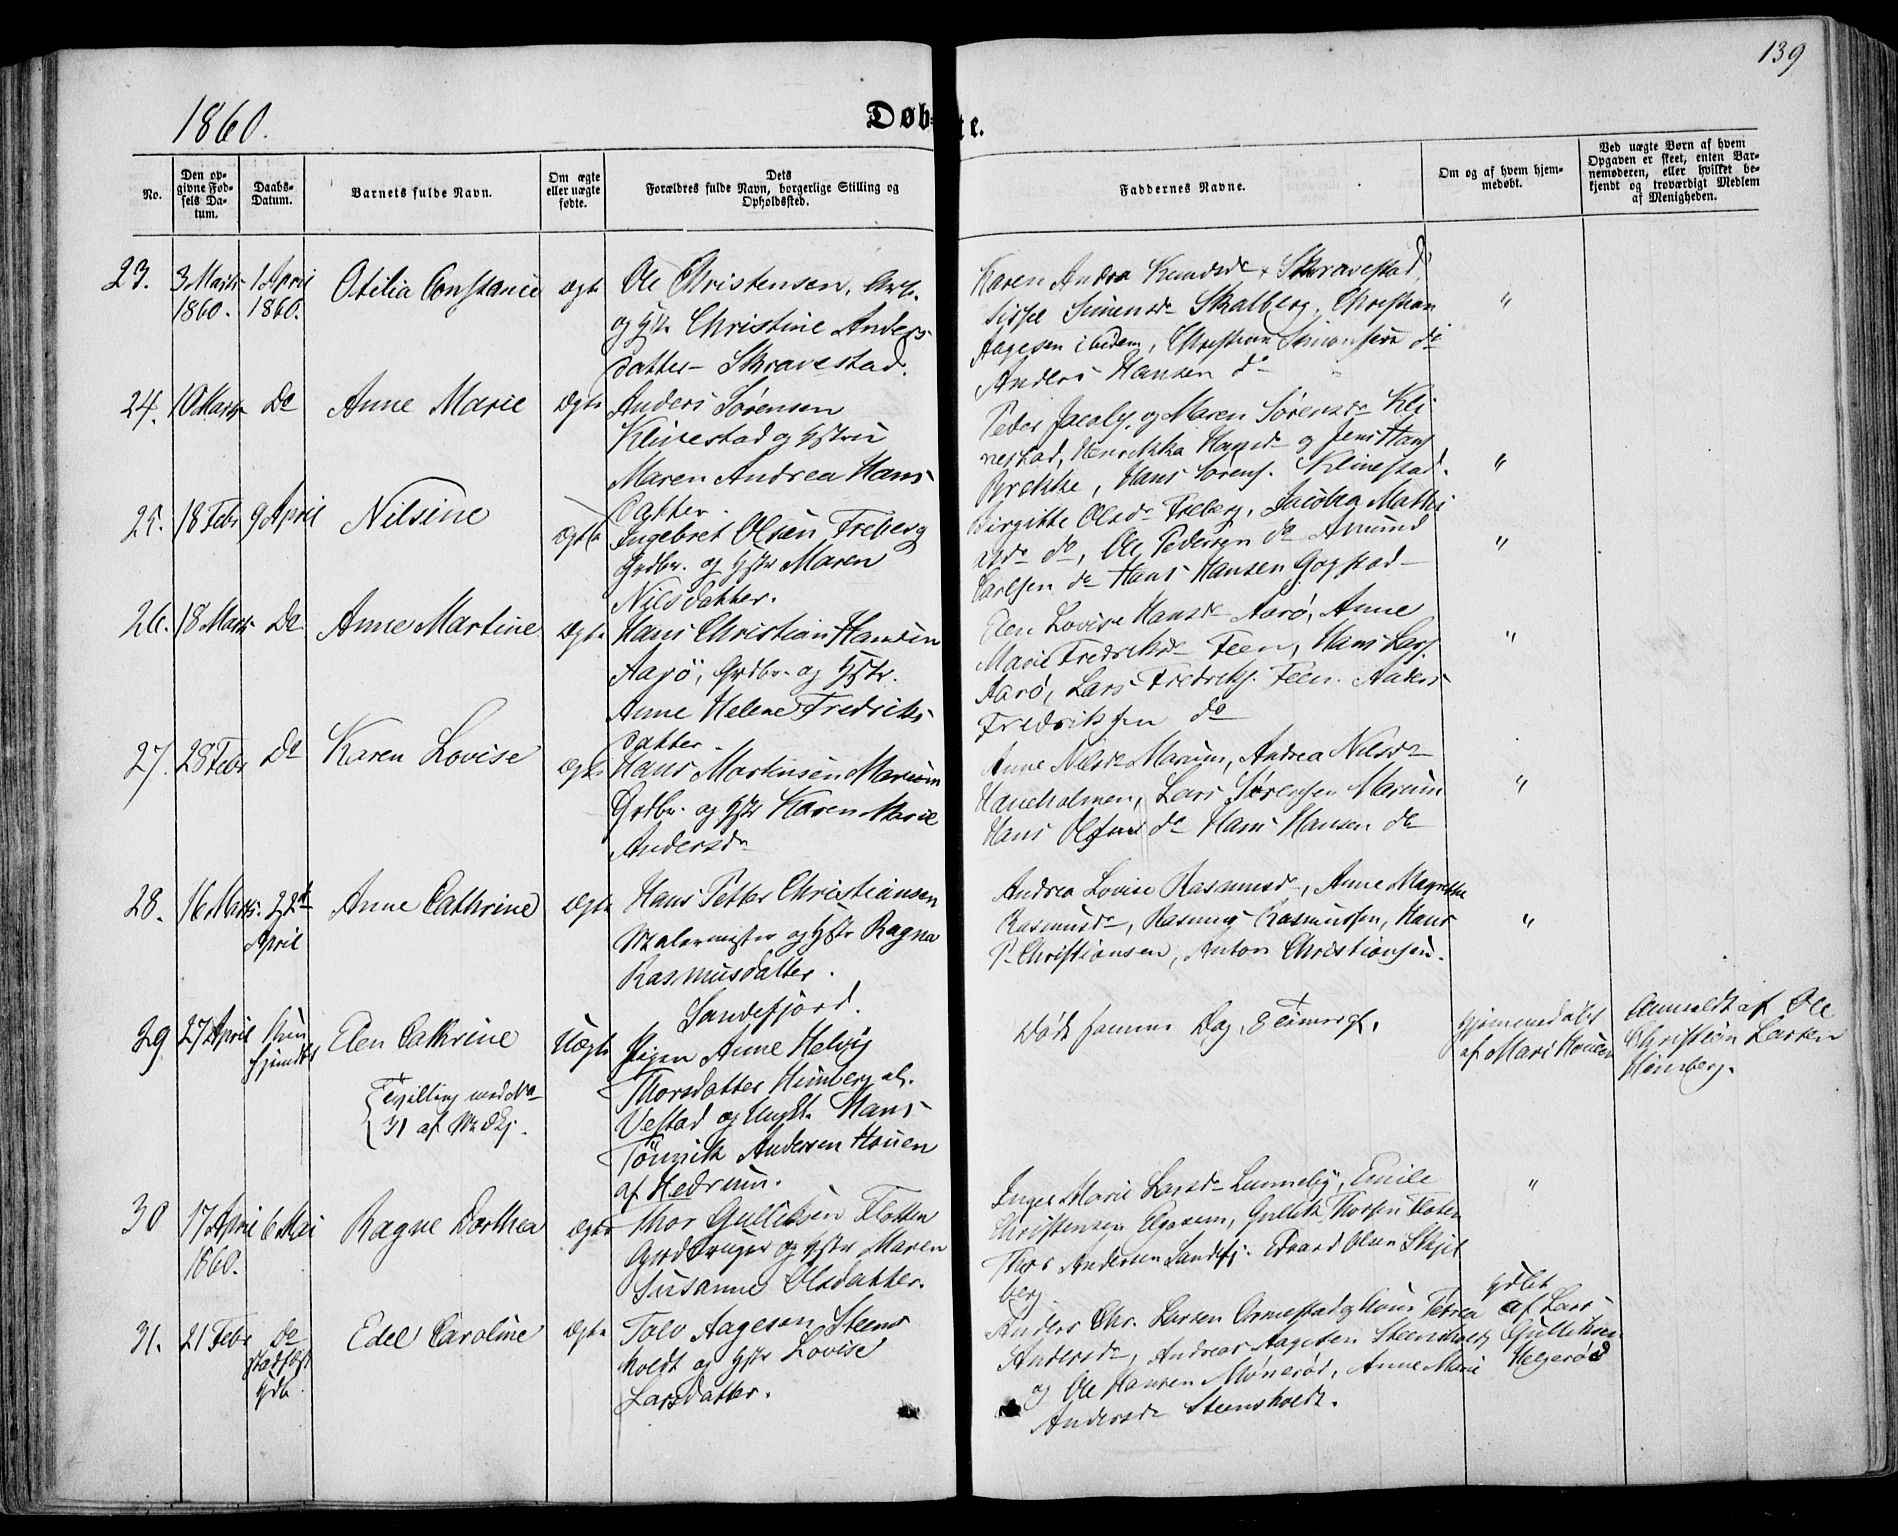 139
1860.
Døbte.
No.
Den opgivne Fødsels Datum.
Daabs-Datum.
Barnets fulde Navn.
Om ægte eller uægte fødte.
Dets Forældres fulde Navn, borgerlige Stilling og Opholdssted.
Faddernes Navne.
Om og af hvem hjemmedøbt.
Ved uægte Børn af hvem Opgaven er skeet, enten Barnemoderen, eller hvilket bekjendt og troværdigt Medlem af Menigheden.
23. 3 Marts 1860. 1 April 1860. Otilia Constance ægte
Ole Christensen,
og Hstr Christine Anders-
datter Skravestad.
Karen Andrea Knudsdr Skravestad,
Sissel Simensdr Skalberg, Christian
Aagesen ibidem, Christian Simonsen do
Anders Hansen do
"
24. 10 Marts Do Anne Marie Ægte
Anders Sørensen
Klinestad og Hstru
Maren Andrea Hans-
datter.
Peder Jacobs. og Maren Sørensdr Kli-
nestad, Henrikka Hansdr og Jens Hans.
Brekke, Hans Sørens. Klinestad.
"
25. 18 Febr 9 April Nilsine Ægte
Ingebret Olsen Freberg
Grdbr. og Hstr Maren
Nilsdatter.
Birgitte Olsdr Freberg, Jacobea Mathi-
asdr do, Ole Pedersen do Amund
Carlsen do Hans Hansen Gogstad
"
26. 18 Marts Do Anne Martine Ægte
Hans Christian Hansen
Aarö, Grdbr. og Hstr.
Anne Helene Fredriks-
datter.
Elen Lovise Hansdr Aarö, Anne
Marie Fredriksdr Feen, Hans Lars.
Aarö, Lars Fredriks. Feen. Anders
Fredriksen do
"
27. 28 Febr Do Karen Lovise Ægte
Hans Martinsen Marum
Grdbr. og Hstr Karen Marie
Andersdr
Anne Nilsdr Marum, Andrea Nilsdr
Haneholmen, Lars Sørensen Marum
Hans Olsen do Hans Hansen do
"
28. 16 Marts. 22de April Anne Cathrine Ægte
Hans Petter Christiansen
Malermester og Hstr Ragna
Rasmusdatter.
Sandefjord.
Andrea Lovise Rasmusdr, Anne Magrethe
Rasmusdr, Rasmus Rasmussen, Hans
P. Christiansen, Anton Christiansen.
"
29 27 April Kun hjemdbt Elen Cathrine Uægte
Tvilling med No
31 af
Pigen Anne Helvig
Thorsdatter Himberg
Vestad og Ungk. Hans
Tönnich Andersen Houen
af Hedrum.
Døde samme Dag, 8 Timer gl.
Hjemmedøbt
af Mari Houen
Anmeldt af Ole
Christian Larsen
Himberg.
30 17 April 1860. 6 Mai Ragne Dorthea Ægte
Thor Gulliksen Flotten
Gaardbruger og Hstr Maren
Susanne Olsdatter.
Inger Marie Larsdr Lunneby, Emile
Christensen, Gullik Thorsen Floten
Thor Andersen Sandefj. Edvard Olsen Skjel-
berg
"
31. 21 Febr Do stadfæst Hjdb. Edel Caroline Ægte
Tolv Aagesen Steens-
holdt og Hstr Lovise
Larsdatter.
Anders Chr. Larsen Ormestad og Kone Petrea
Andersdr, Andreas Aagesen Steensholdt
og Ole Hansen Mønerød, Anne Marie
Andersdr Steensholdt.
Hjdbt
af Lars
Gulliksen
Helgerød